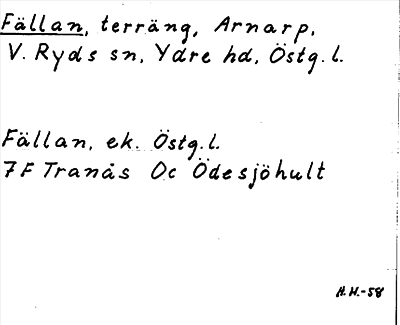 Fällan, terräng, Arnarp,
V. Ryds sn, Ydre hd, Östg. l.
Fällan, ek. Östg. l.
7F Tranås Oc Ödesjöhult
H.H.-58